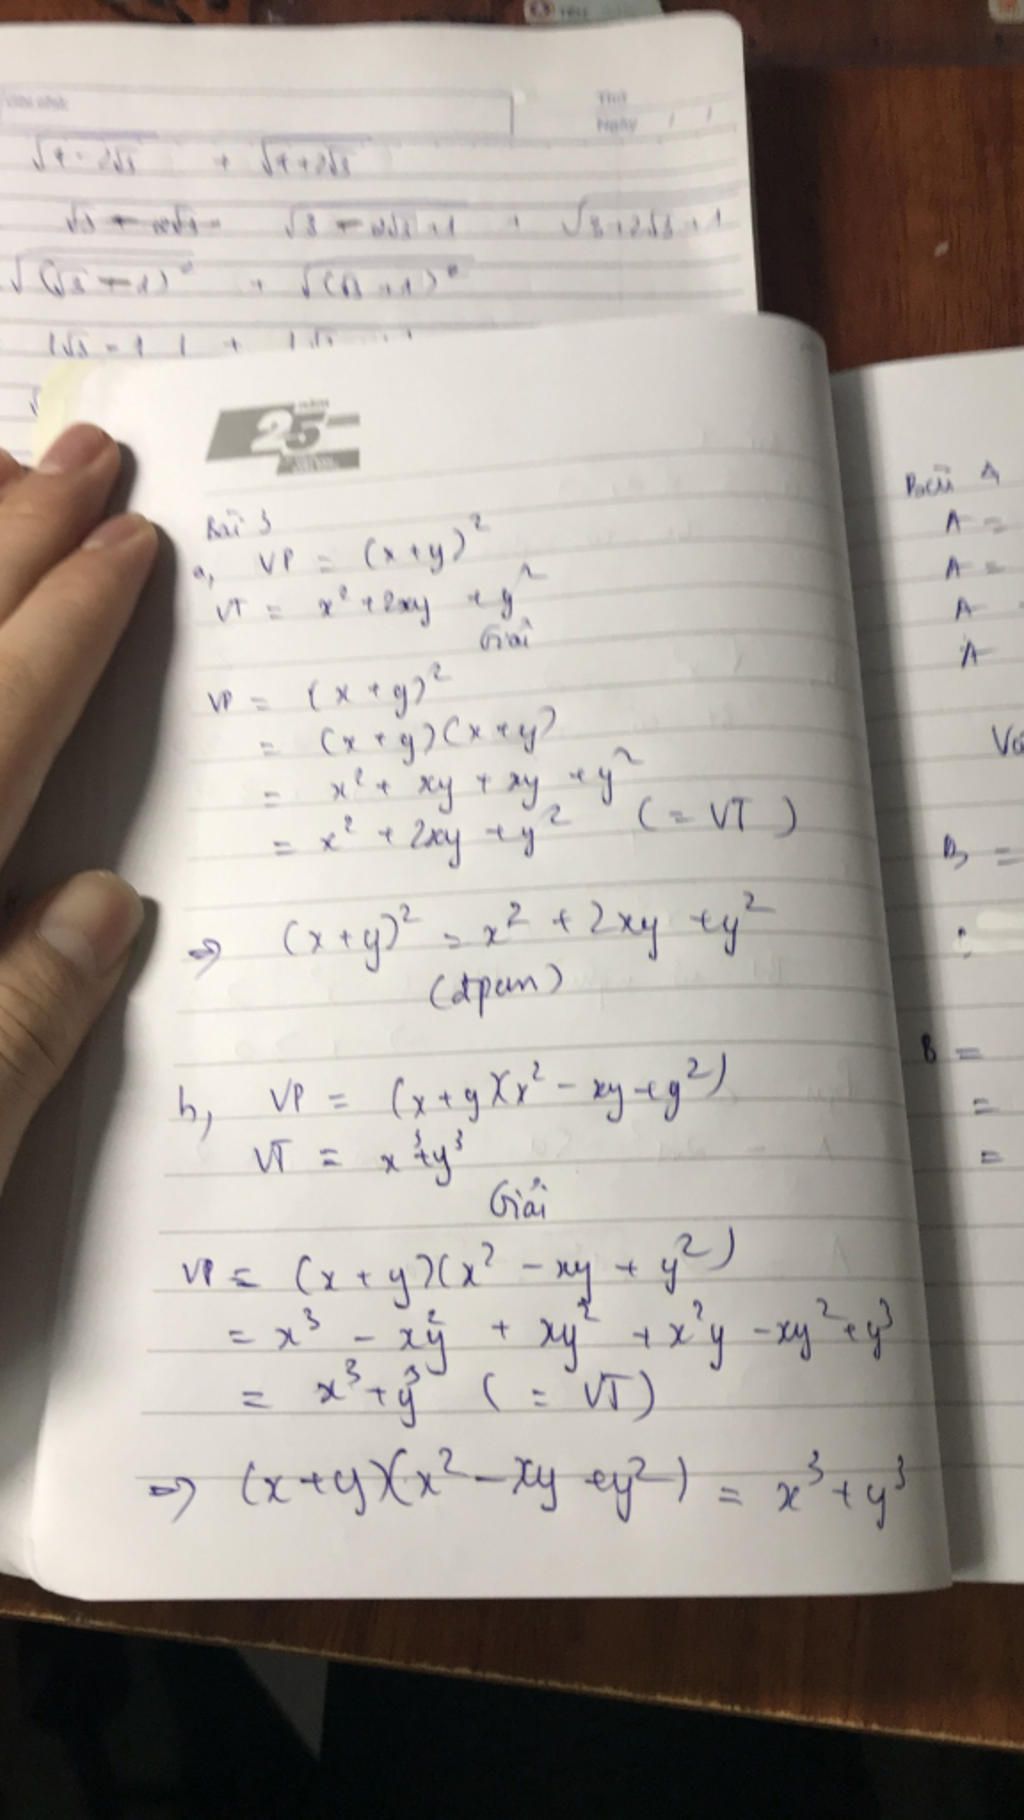 Thứ
Ngày / /
√4-2√3 + √4+2√3
√3 - 2√3+1 + √3+2√3+1
√(√3-1)² + √(√3+1)²
|√3-1| +
25
Bài 3
a, VP = (x+y)²
VT = x²+2xy +y²
Giải
VP = (x+y)²
= (x+y)(x+y)
= x²+ xy + xy +y²
= x² +2xy +y² (= VT)
=> (x+y)² = x² +2xy +y²
(đpcm)
b, VP = (x+y)(x² - xy+y²)
VT = x³+y³
Giải
VP = (x+y)(x² - xy + y²)
= x³ - x²y + xy² + x²y - xy² + y³
= x³+y³ (= VT)
=> (x+y)(x² - xy +y²) = x³+y³
Bài 4
A =
A =
A
A
B =
B =
=
=